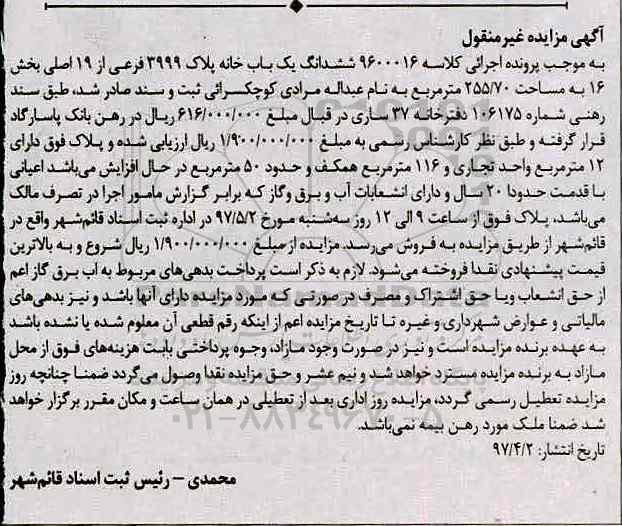 آگهی مزایده غیرمنقول
به موجب پرونده اجرائی کلاسه ۹۶۰۰۰۱۶ ششدانگ یک باب خانه پلاک ۳۹۹۹ فرعی از ۱۹ اصلی بخش
۱۶ به مساحت ۲۵۵/۷۰ مترمربع به نام عبداله مرادی کوچکسرائی ثبت و سند صادر شد، طبق سند
رهنی شماره ۱۰۶۱۷۵ دفترخانه ۳۷ ساری در قبال مبلغ ۶۱۶/۰۰۰/۰۰۰ ریال در رهن بانک پاسارگاد
قرار گرفته و طبق نظر کارشناس رسمی به مبلغ ۱/۹۰۰/۰۰۰/۰۰۰ ریال ارزیابی شده و پلاک فوق دارای
۱۲ مترمربع واحد تجاری و ۱۱۶ مترمربع همکف و حدود ۵۰ مترمربع در حال افزایش می‌باشد اعیانی
با قدمت حدودا ۲۰ سال و دارای انشعابات آب و برق وگاز که برابر گزارش مامور اجرا در تصرف مالک
می‌باشد، پلاک فوق از ساعت ۹ الی ۱۲ روز سه‌شنبه مورخ ۹۷/۵/۲ در اداره ثبت اسناد قائم‌شهر واقع در
قائم‌شهر از طریق مزایده به فروش می‌رسد. مزایده از مبلغ ۱/۹۰۰/۰۰۰/۰۰۰ ریال شروع و به بالاترین
قیمت پیشنهادی نقدا فروخته می‌شود. لازم به ذکر است پرداخت بدهی‌های مربوط به اب برق گاز اعم
از حق انشعاب ویا حق اشتراک و مصرف در صورتی که مورد مزایده دارای آنها باشد و نیز بدهی‌های
مالیاتی و عوارض شهرداری و غیره تا تاریخ مزایده اعم از اینکه رقم قطعی آن معلوم شده یا نشده باشد
به عهده برنده مزایده است و نیز در صورت وجود مازاد، وجوه پرداختی بابت هزینه‌های فوق از محل
مازاد به برنده مزایده مسترد خواهد شد و نیم عشر و حق مزایده نقدا وصول می‌گردد ضمنا چنانچه روز
مزایده تعطیل رسمی گردد، مزایده روز اداری بعد از تعطیلی در همان ساعت و مکان مقرر برگزار خواهد
شد ضمنا ملک مورد رهن بیمه نمی‌باشد.
تاریخ انتشار: ۹۷/۴/۲
محمدی – رئیس ثبت اسناد قائم‌شهر
۰۲۱-۸۸۳۴۹۶۷۰-۵